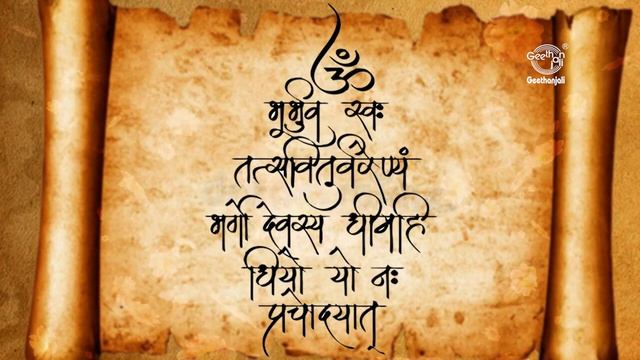 ॐ
भूर्भुव स्वः
तत्सवितुर्वरेण्यं
भर्गो देवस्य धीमहि
धियो यो नः
प्रचोदयात्
Geethanjali
®
Geethanjali